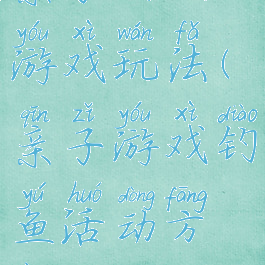 yóu xì wán fǎ
游戏玩法(
qīn zǐ yóu xì diào
亲子游戏钓
yú huó dòng fāng
鱼活动方